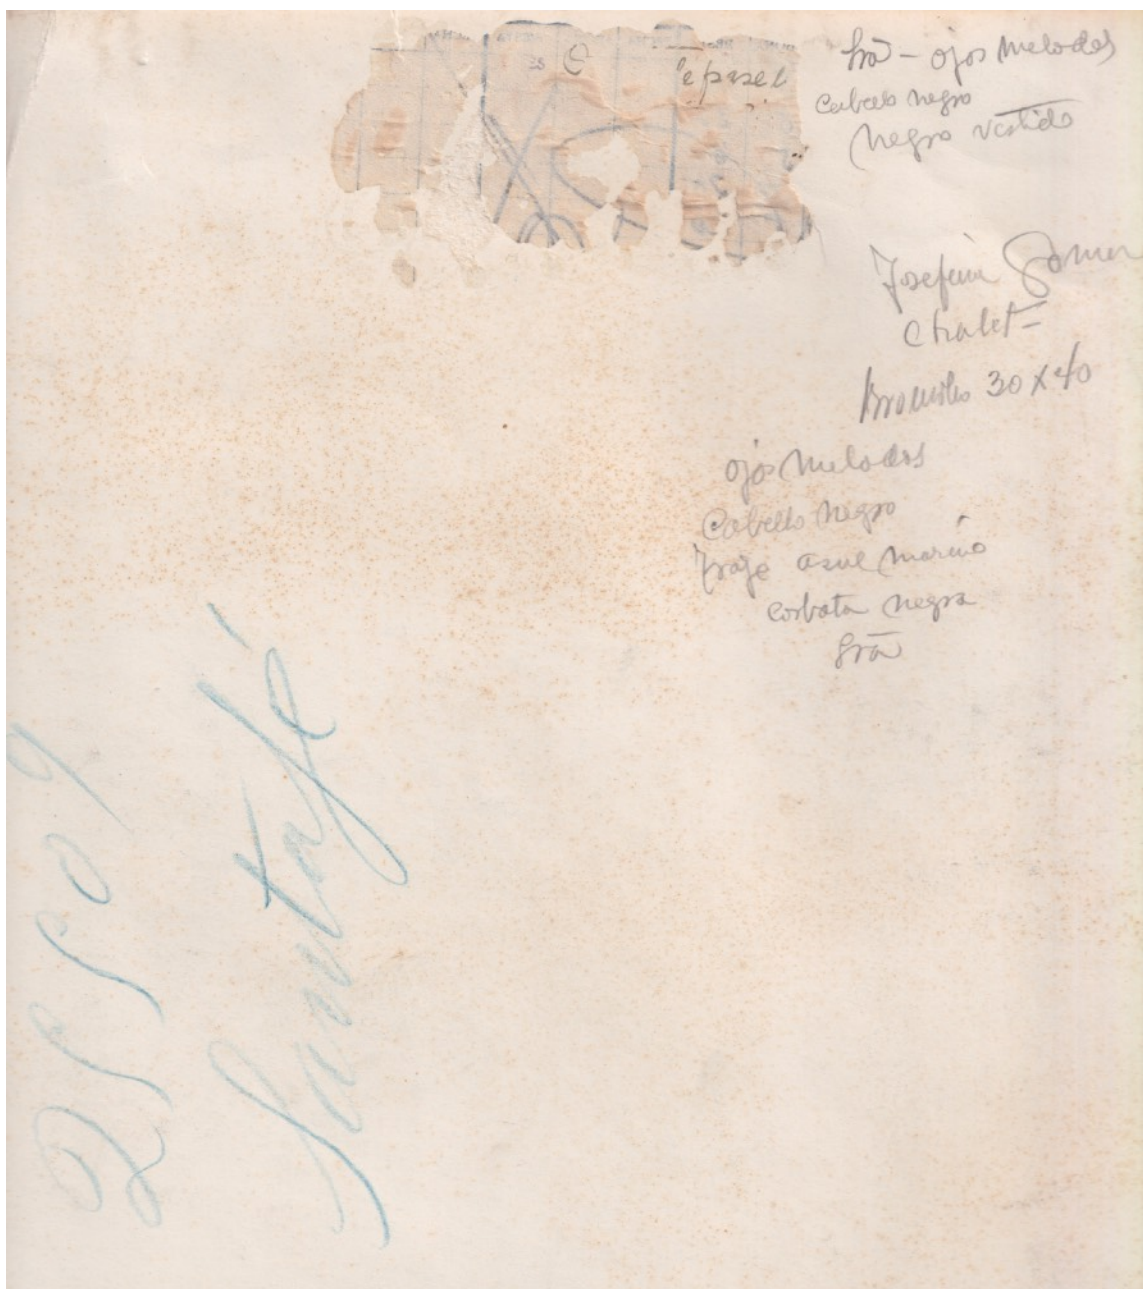 ojos melados
Cabello negro
negro vestido
Josefina Gomez
Chalet-
Bromuro 30 x 40
ojos melados
Cabello negro
Traje azul marino
corbata negra
Santafé